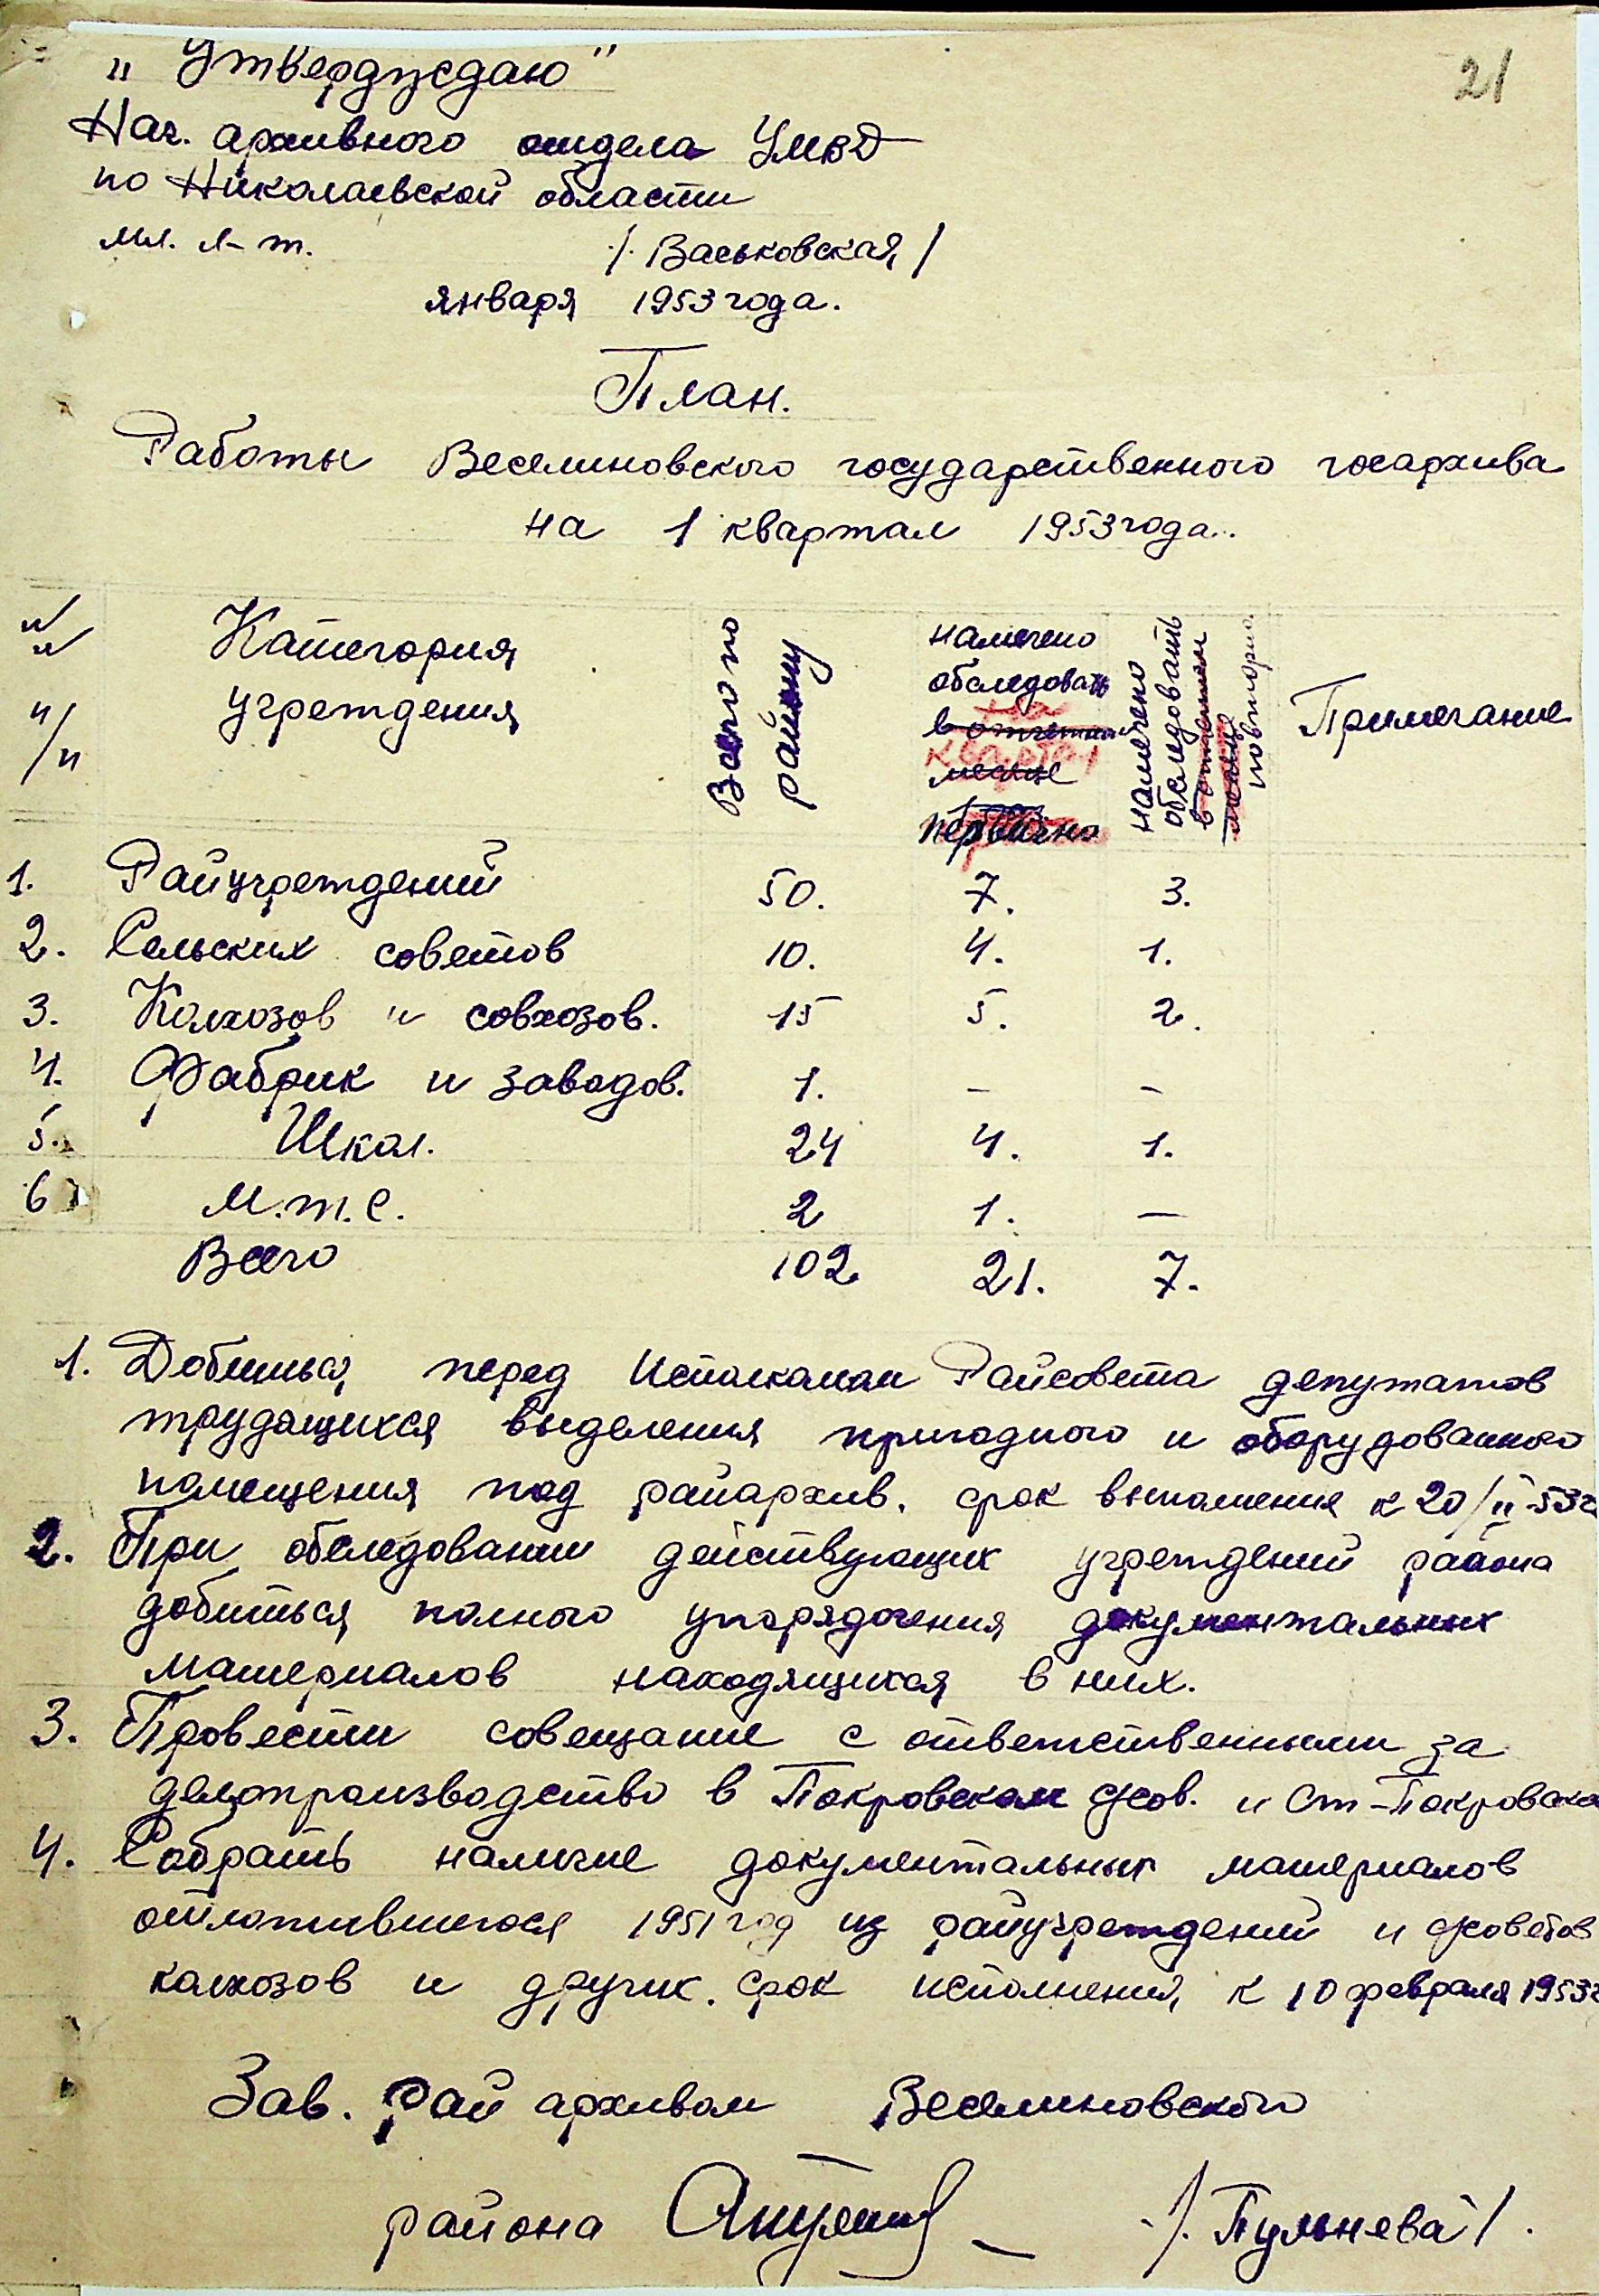 21
„Утверждаю"
Нач. архивного отдела УМВД
по Николаевской области
мл. л-т. /. Васьковская /
января 1953 года.
План.
Работы Веселиновского государственного госархива
на 1 квартал 1953 года.
№№ п/п Категория учреждения Всего по району намечено обследовать в отчетном месяце на квартал первично намечено обследовать в отчетном месяце повторно Примечание
1. Райучреждений 50. 7. 3.
2. Сельских советов 10. 4. 1.
3. Колхозов и совхозов. 15 5. 2.
4. Фабрик и заводов. 1. – –
5. Школ. 24 4. 1.
6 М.т.С. 2 1. —
Всего 102 21. 7.
1. Добиться, перед Исполкомом Райсовета депутатов
трудящихся выделения пригодного и оборудованного
помещения под райархив. срок выполнения к 20/II-53г
2. При обследовании действующих учреждений района
добиться полного упорядочения документальных
материалов находящихся в них.
3. Провести совещание с ответственными за
делопроизводство в Покровском с/сов. и Ст-Покровско
4. Собрать наличие документальных материалов
отложившегося 1951 год из райучреждений и с/советов
колхозов и других. срок исполнения, к 10 февраля 1953г
Зав. Рай архивом Веселиновского
района /. Пульнева /.